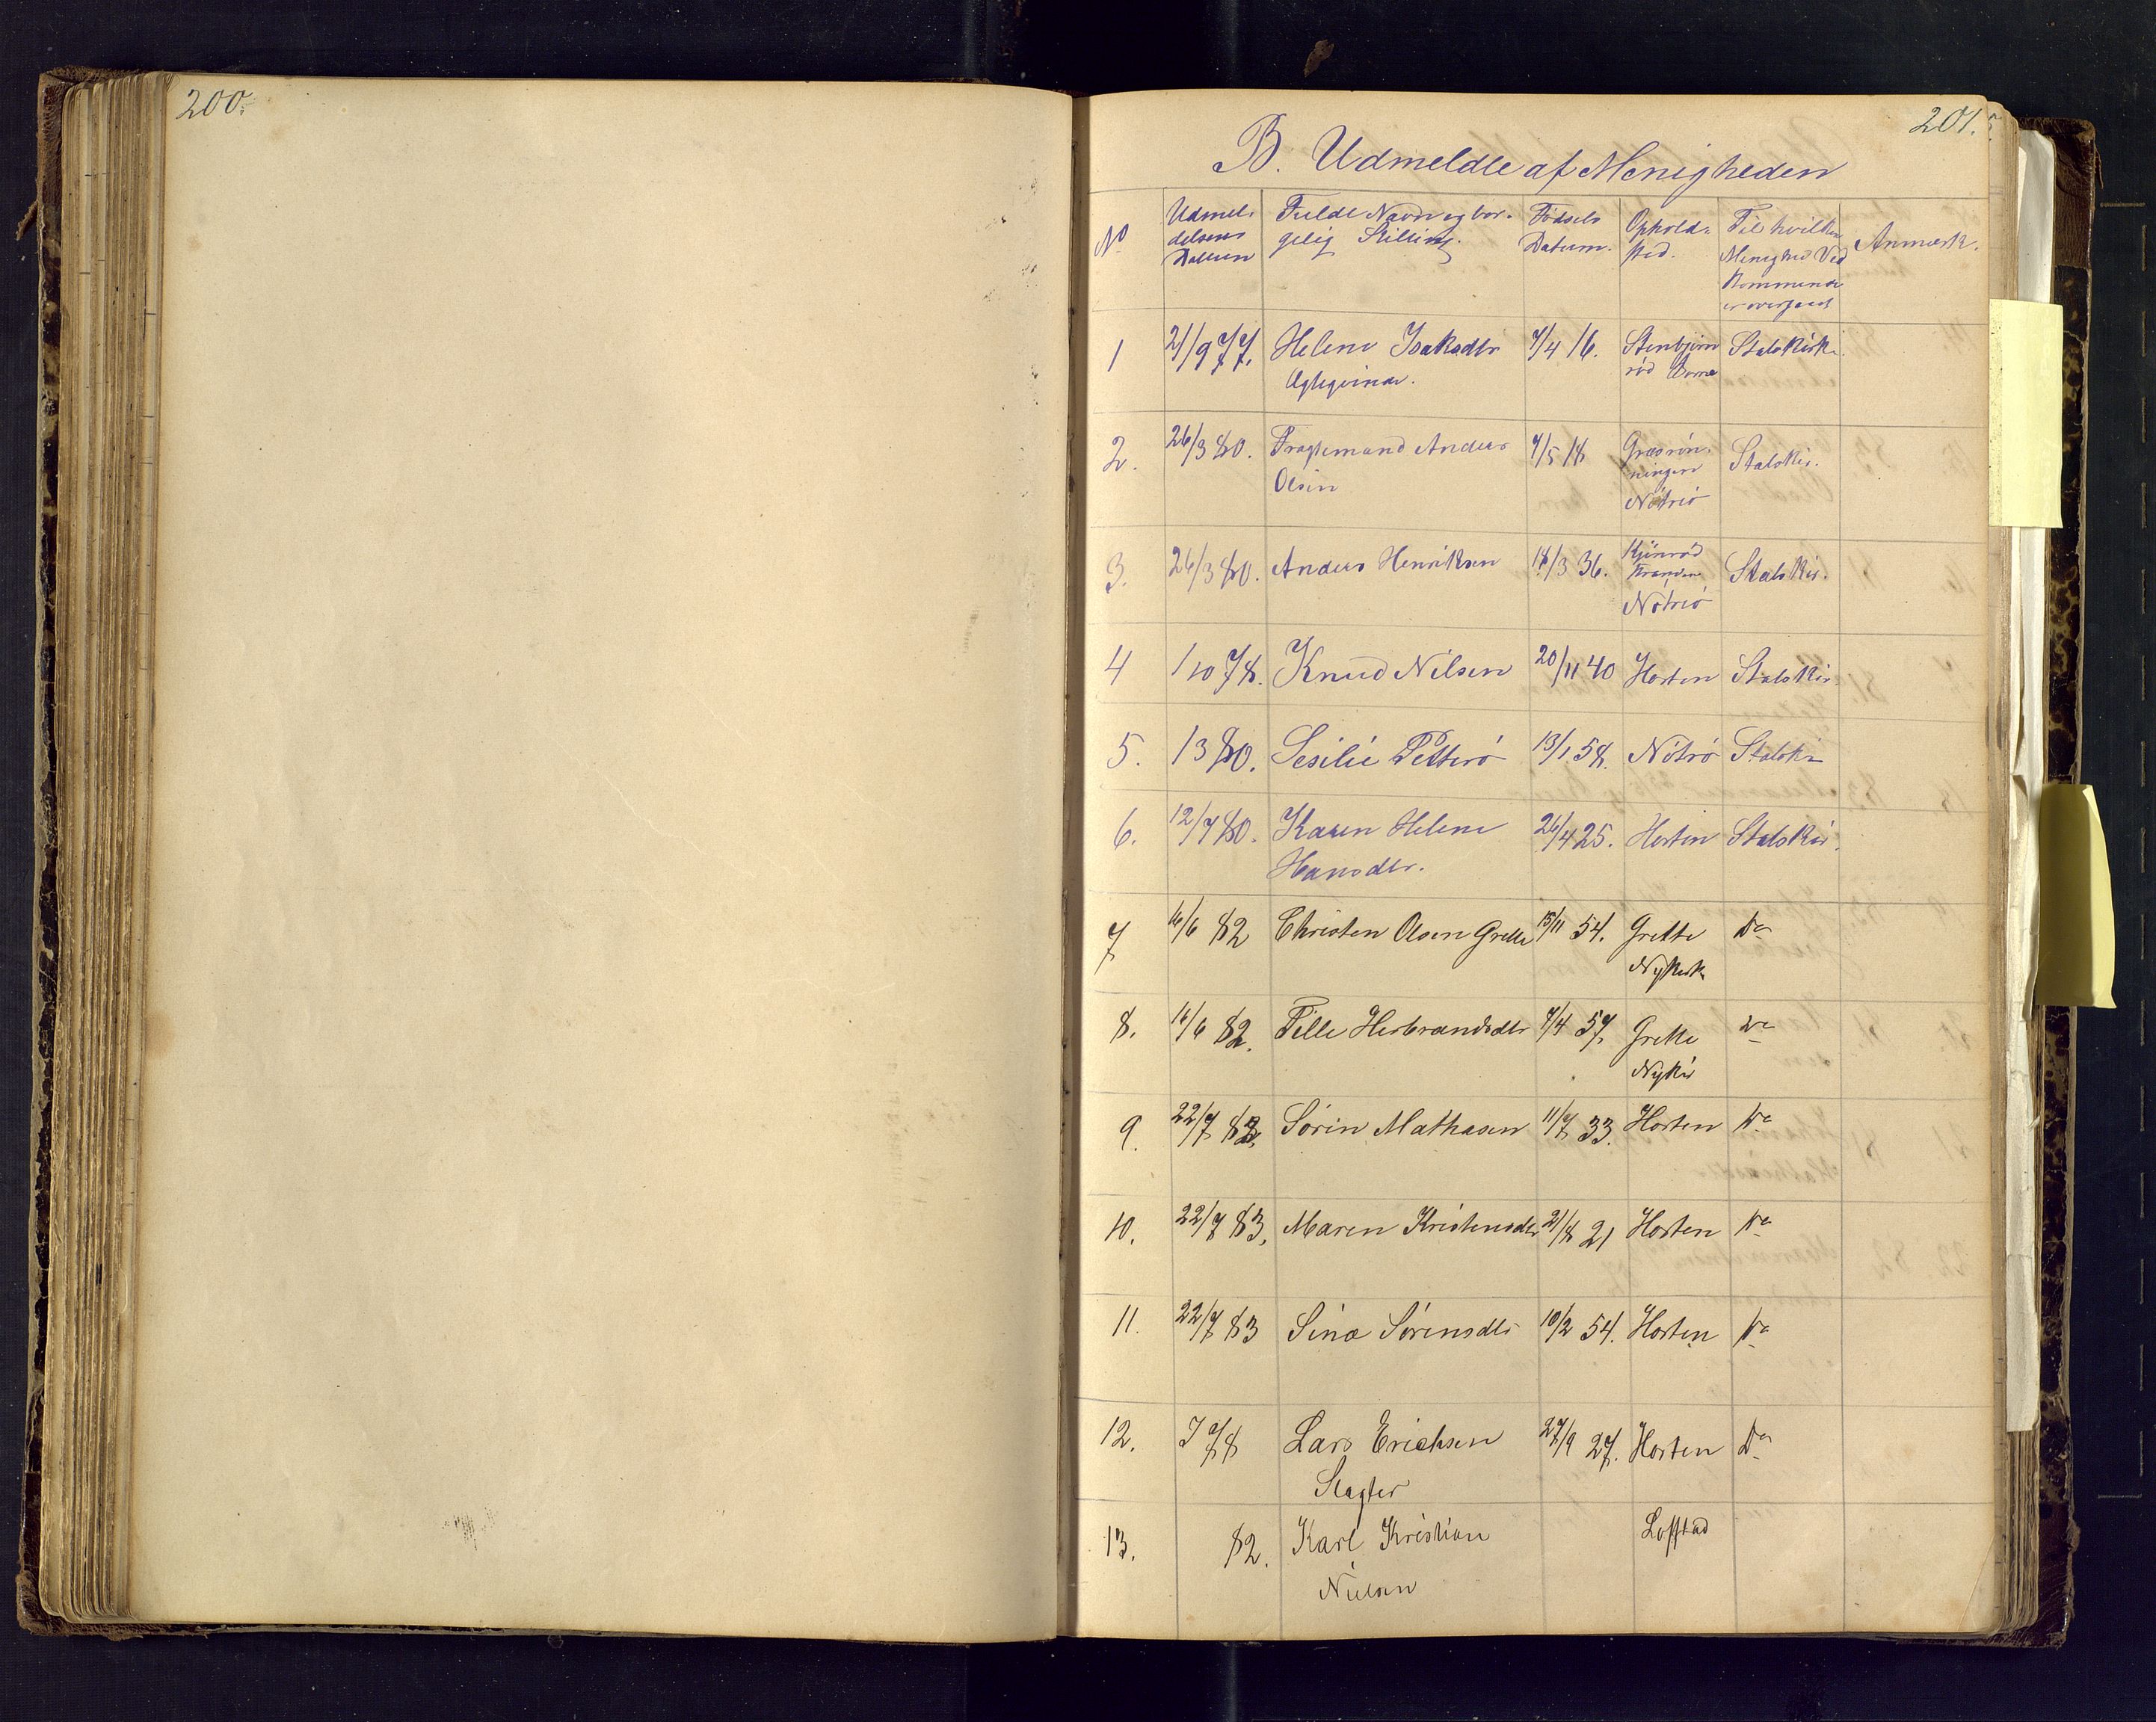 200.
201.
B. Udmeldte af Menigheden
No
Udmel-
delsens
Datum
Fulde Navn og bor-
gelig Stilling.
Fødsels
Datum.
Ophold-
sted.
Til hvilken
Menighed Ved
kommende
er overgaaet
Anmærk.
1 21/9 77. Helene Isaksdtr 7/4 16. Stenbjørn Statskirk.
rød
2. 26/3 80. Fragtemand Anders 7/5 18 Græsrøn- Statskir.
Olsen ningen
Nøtrø
3. 26/3 80. Anders Henriksen 18/3 36. Statskir.
Nøtrø
4 1/10 78. Knud Nilsen 20/11 40 Horten Statskir.
5. 13 80. Sesilie Petterø 13/1 58. Nøtrø Statskir
6. 12/7 80. Karen Helene 26/4 25. Horten Statskir.
Hansdtr.
7 16/6 82 Christen Olsen Grette 15/11 54. Grette Do
Nykirk
8. 16/6 82. Tille Herbrandsdtr 7/4 57. Grette Do
Nykir
9. 22/7 83. Sørin Mathasen 11/7 33. Horten Do
10. 22/7 83. Maren Kristensdtr 21/8 21 Horten Do
11. 22/7 83 Sina Sørensdtr 10/2 54. Horten Do
12. 78 Lars Erichsen 27/9 27. Horten Do
Slagter
13. 82. Karl Kristian Loftstad
Nielsen